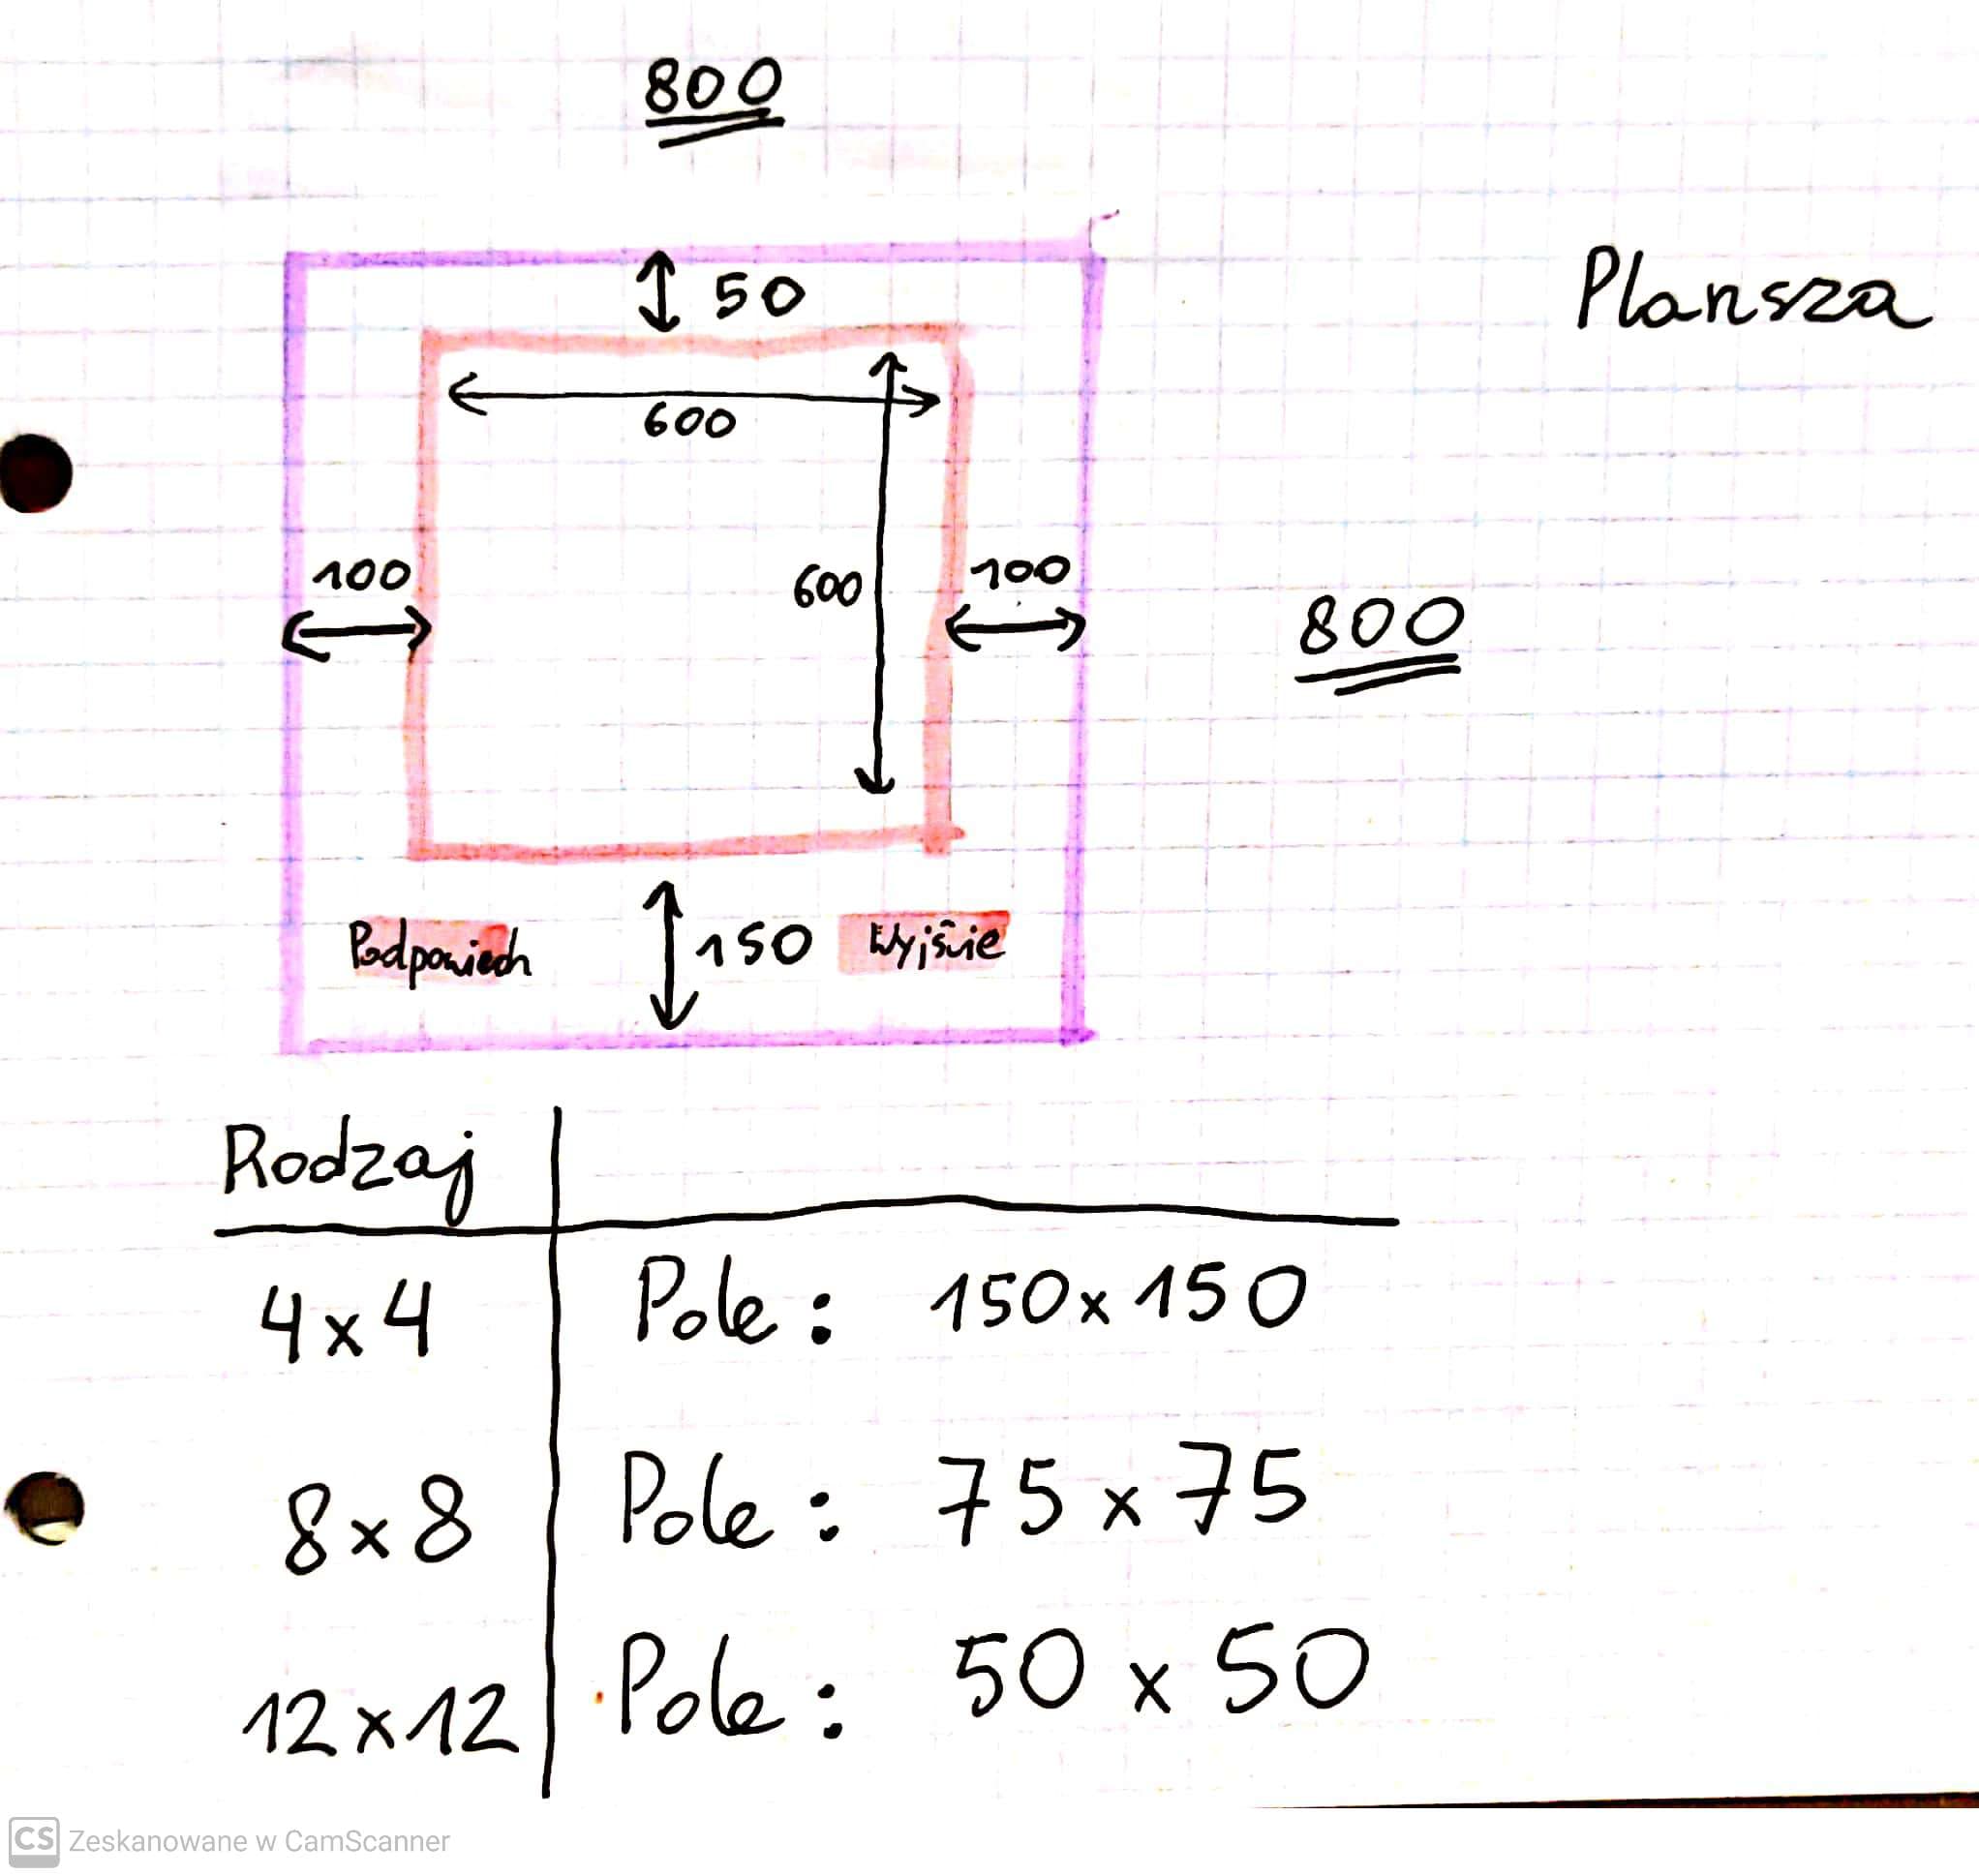 800
Plansza
50
600
100
600
100
800
Podpowiedź
150
Wyjście
Rodzaj
4x4 Pole: 150x150
8x8 Pole: 75x75
12x12 Pole: 50x50
CS Zeskanowane w CamScanner